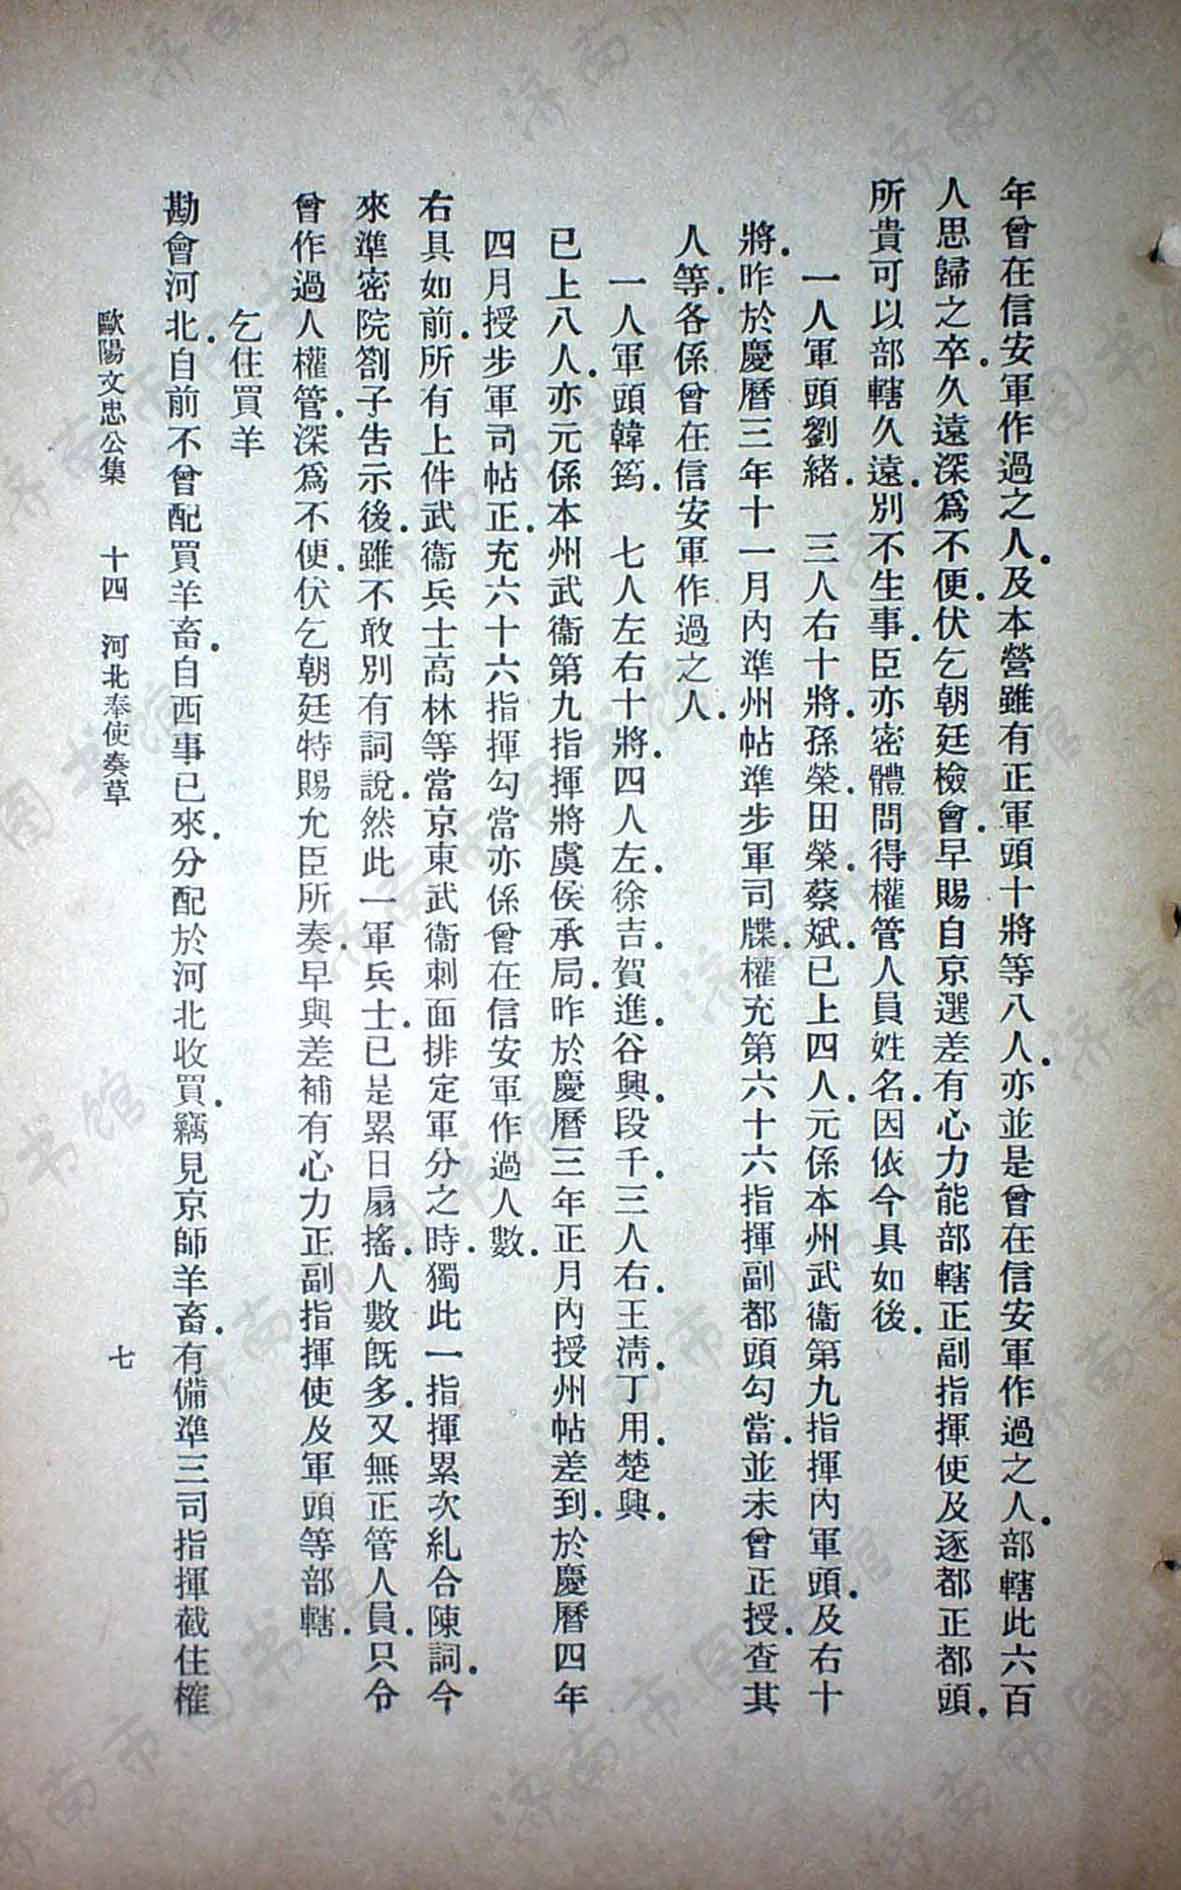 年曾在信安軍作過之人.及本營雖有正軍頭十將等八人.亦並是曾在信安軍作過之人.部轄此六百
人思歸之卒.久遠深爲不便.伏乞朝廷檢會.早賜自京選差有心力能部轄正副指揮使及逐都正都頭.
所貴可以部轄久遠.別不生事.臣亦密體問得權管人員姓名.因依今具如後.
一人軍頭劉緒.　三人右十將.孫榮.田榮.蔡斌.已上四人.元係本州武衞第九指揮內軍頭.及右十
將.昨於慶曆三年十一月內準州帖準步軍司牒.權充第六十六指揮副都頭勾當.並未曾正授.查其
人等.各係曾在信安軍作過之人.
一人軍頭韓筠.　七人左右十將.四人左.徐吉.賀進.谷興.段千.三人右.王淸.丁用.楚興.
已上八人.亦元係本州武衞第九指揮將虞侯承局.昨於慶曆三年正月內授州帖差到.於慶曆四年
四月授步軍司帖.正充六十六指揮勾當.亦係曾在信安軍作過人數.
右具如前.所有上件武衞兵士高林等.當京東武衞刺面排定軍分之時.獨此一指揮累次糺合陳詞.今
來準密院劄子告示後.雖不敢別有詞說.然此一軍兵士.已是累日扇搖.人數旣多.又無正管人員.只令
曾作過人權管.深爲不便.伏乞朝廷特賜允臣所奏.早與差補有心力正副指揮使及軍頭等部轄.
乞住買羊
勘會河北.自前不曾配買羊畜.自西事已來.分配於河北收買.竊見京師羊畜.有備準三司指揮截住榷
歐陽文忠公集　十四　河北奉使奏草　七
济南市图书馆